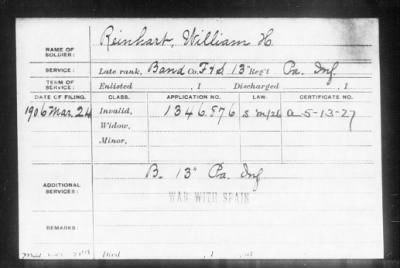 NAME OF SOLDIER: Reinhart, William H.
SERVICE: Late rank, Band Co. F & S 13" Reg't Pa. Inf.
TERM OF SERVICE: Enlisted , 1 Discharged , 1
DATE OF FILING. CLASS. APPLICATION NO. LAW. CERTIFICATE NO.
1906 Mar. 24 Invalid, 1346.976
Widow,
Minor,
ADDITIONAL SERVICES: B. 13" Pa. Inf
WAR WITH SPAIN
REMARKS:
Died , 1 , at